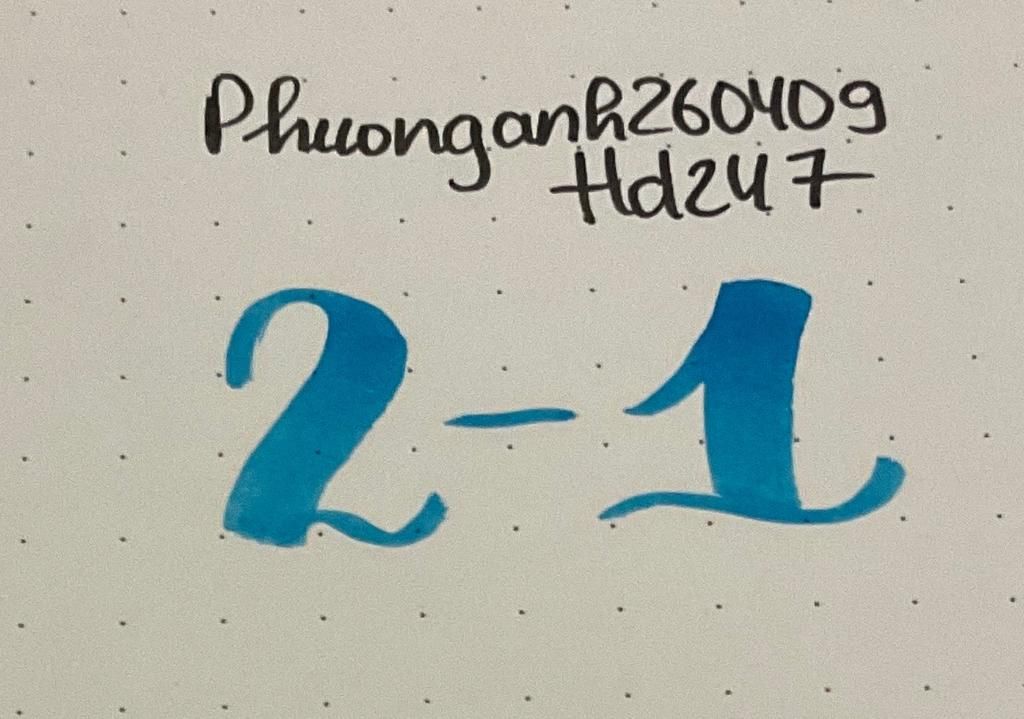 Phuonganh260409
Hd247
2-1